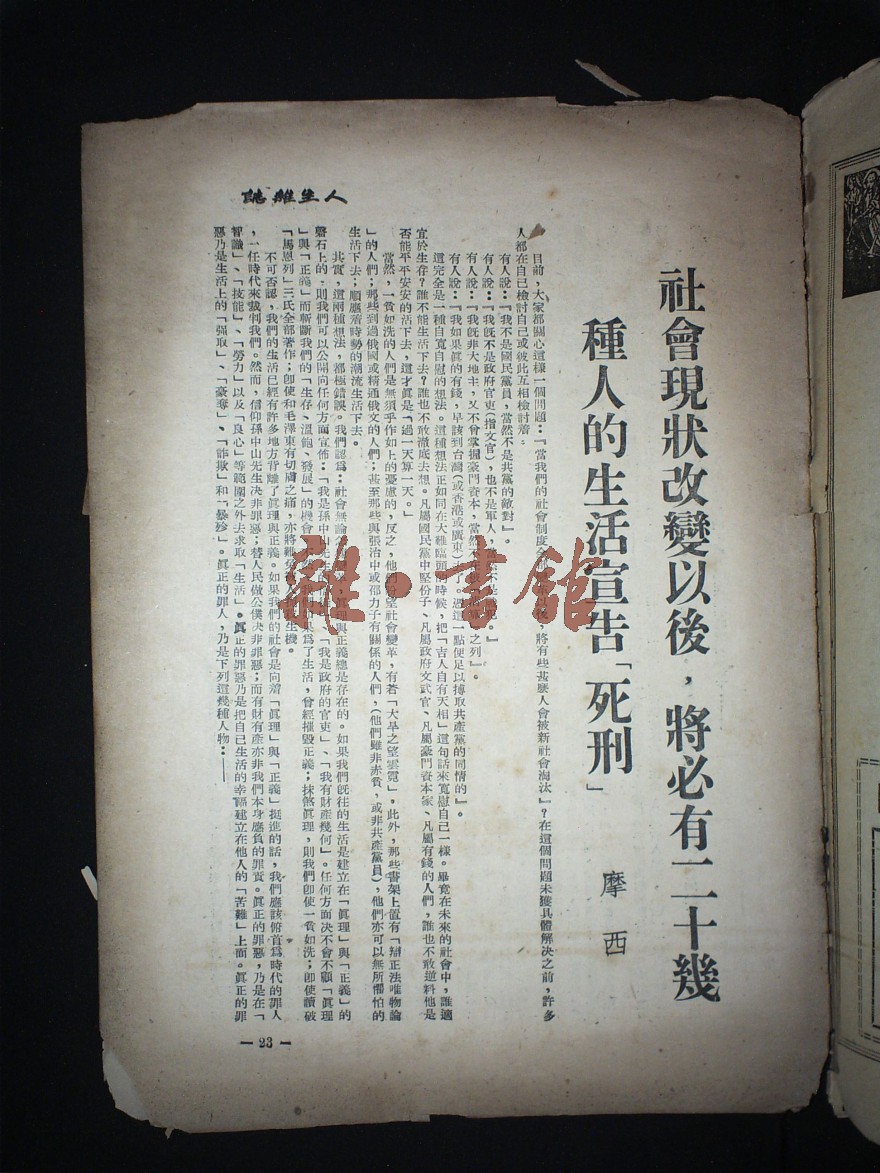 人生雜誌
社會現狀改變以後，將必有二十幾
種人的生活宣告「死刑」
摩西
目前，大家都關心這樣一個問題：「當我們的社會制度全部變革以後，將有些甚麼人會被新社會淘汰」？在這個問題未獲具體解決之前，許多
人都在自己檢討自己或彼此互相檢討着：
有人說：『我不是國民黨員，當然不是共黨的敵對』。
有人說：『我旣不是政府官吏（指文官），也不是軍人，當然不是
有人說：『我旣非大地主，又不曾掌握豪門資本，當然不在 之列』。
有人說：『我如果眞的有錢，早該到台灣（或香港或廣東）去了。憑這一點便足以搏取共產黨的同情的』。
這完全是一種自寬自慰的想法。這種想法正如同在大難臨頭的時候，把「吉人自有天相」這句話來寬慰自己一樣。畢竟在未來的社會中，誰適
宜於生存？誰不能生活下去？誰也不敢澈底去想。凡屬國民黨中堅份子、凡屬政府文武官、凡屬豪門資本家、凡屬有錢的人們，誰也不敢逆料他是
否能平平安安的活下去，這才眞是「過一天算一天。」
當然，一貧如洗的人們是無須乎作如上的憂慮的，反之，他們盼望社會變革，有若「大旱之望雲霓」。此外，那些書架上置有「辯正法唯物論
」的人們；那些到過俄國或精通俄文的人們；甚至那些與張治中或邵力子有關係的人們，（他們雖非赤貧，或非共產黨員），他們亦可以無所懼怕的
生活下去；順應着時勢的潮流生活下去。
其實，這兩種想法，都極錯誤。我們認爲：社會無論 革，眞理與正義總是存在的。如果我們旣往的生活是建立在「眞理」與「正義」的
磐石上的，則我們可以公開向任何方面宣佈：「我是孫中山先生的信徒」、「我是政府的官吏」、「我有財產幾何」。任何方面決不會不顧「眞理
」與「正義」而斬斷我們的「生存、溫飽、發展」的機會。 我們如果爲了生活，曾經摧毀正義；抹煞眞理，則我們卽使一貧如洗；卽使讀破
「馬恩列」三氏全部著作；卽使和毛澤東有切膚之痛，亦將難免 生機。
不可否認，我們的生活已經有許多地方背離了眞理與正義。如果我們的社會是向着「眞理」與「正義」挺進的話，我們應該俯首爲時代的罪人
，一任時代來裁判我們。然而，信仰孫中山先生決非罪惡；替人民做公僕決非罪惡；而有財有產亦非我們本身應負的罪責。眞正的罪惡，乃是在「
智識」、「技能」、「勞力」以及「良心」等範圍之外去求取「生活」。眞正的罪惡乃是把自己生活的幸福建立在他人的「苦難」上面。眞正的罪
惡乃是生活上的「强取」、「豪奪」、「詐欺」和「暴殄」。眞正的罪人，乃是下列這幾種人物：——
— 23 —
雜·書館